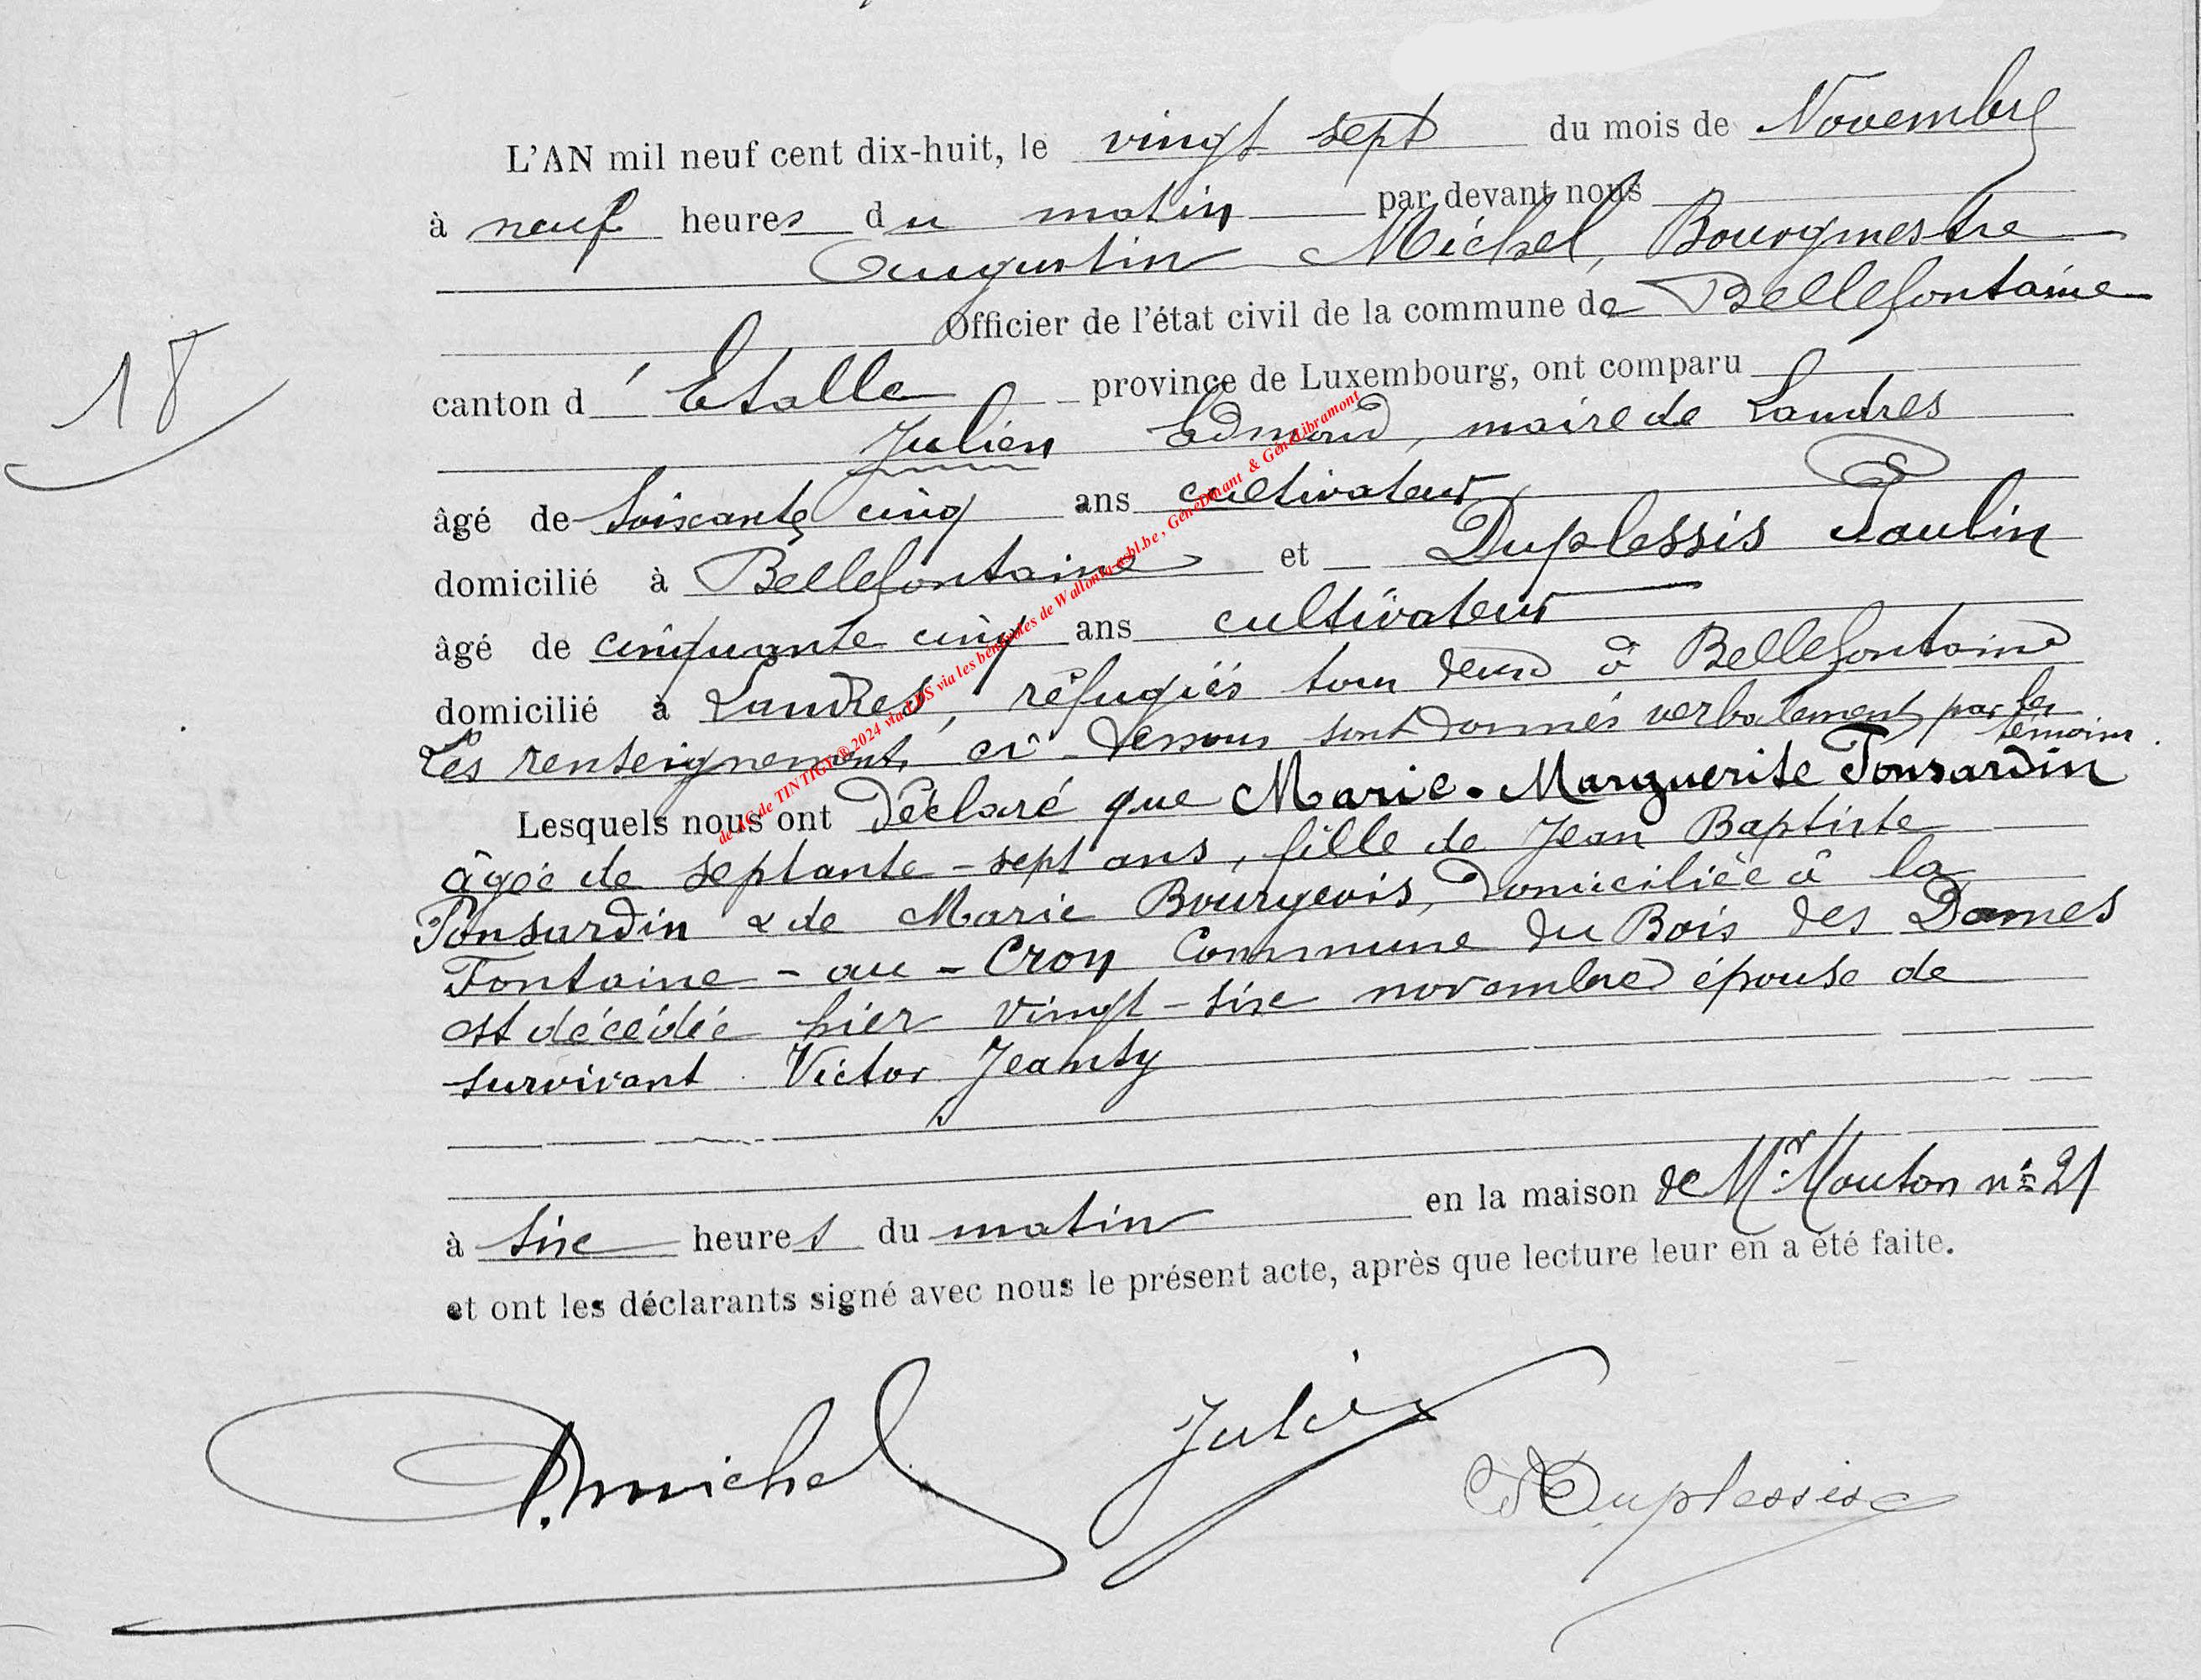 L'AN mil neuf cent dix-huit, le vingt sept du mois de Novembre
à neuf heures du matin par devant nous
Augustin Michel, Bourgmestre
Officier de l'état civil de la commune de Bellefontaine
canton d'Etalle province de Luxembourg, ont comparu
Julien Edmond, maire de Landres
âgé de soixante cinq ans cultivateur
domicilié à Bellefontaine et Duplessis Paulin
âgé de cinquante cinq ans cultivateur
domicilié à Landres, réfugiés tous deux à Bellefontaine
Les renseignements ci-dessous sont donnés verbalement par les témoins.
Lesquels nous ont déclaré que Marie-Marguerite Ponsardin
âgée de septante-sept ans, fille de Jean Baptiste
Ponsardin & de Marie Bourgeois, domiciliée à la
Fontaine-au-Cron Commune du Bois des Dames
est décédée hier vingt-six novembre épouse de
survivant Victor Jeanty
à six heures du matin en la maison de Mr Mouton n° 21
et ont les déclarants signé avec nous le présent acte, après que lecture leur en a été faite.
18
A. michel Julien Duplessis
de TINTIGY ®2024 via LDS via les bénévoles de Wallonia asbl.be, GénéDinant & GénéLibramont